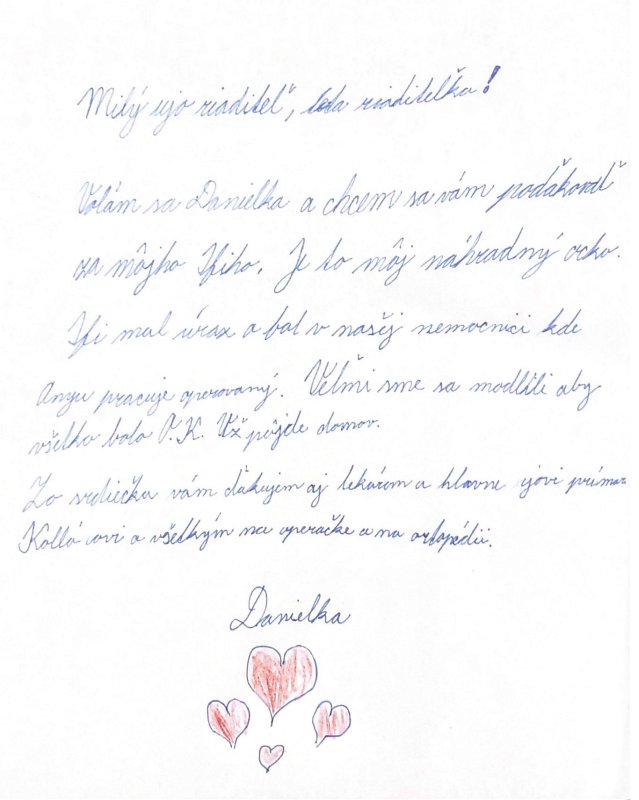 Milý ujo riaditeľ, teta riaditeľka!
Volám sa Danielka a chcem sa vám poďakovať
za môjho Ifiho. Je to môj náhradný ocko.
Ifi mal úraz a bol v našej nemocnici kde
Anyu pracuje operovaný. Veľmi sme sa modlili aby
všetko bolo O.K. Už pôjde domov.
Zo srdiečka vám ďakujem aj lekárom a hlavne ujovi
a všetkým na operačke a na ortopédii.
Danielka